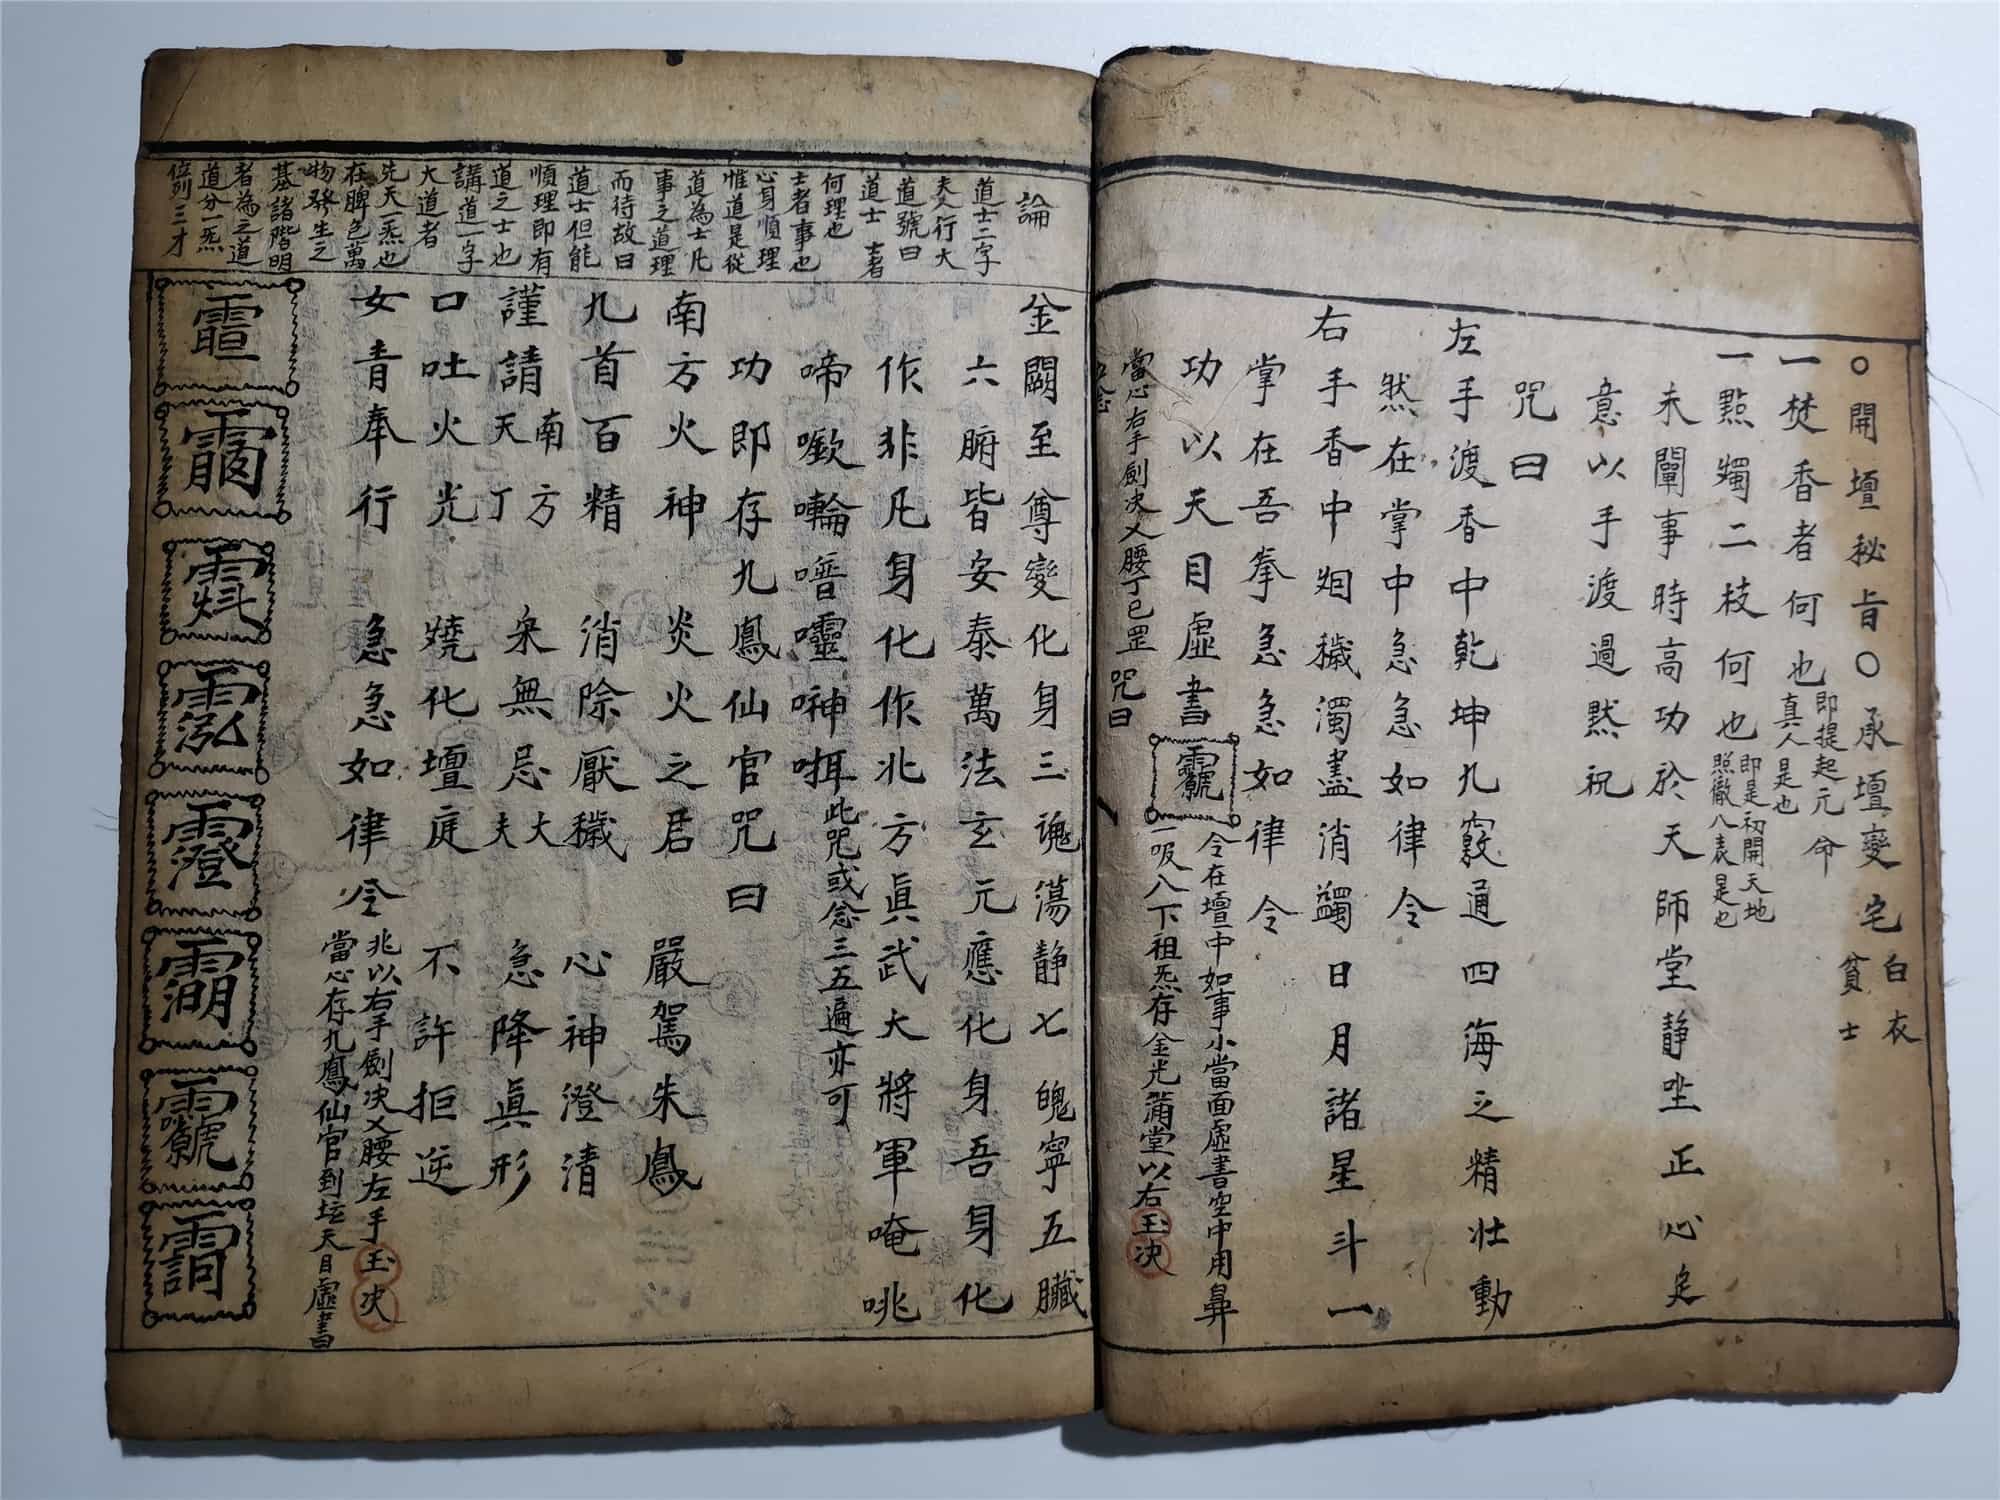 ○開壇秘旨○承壇變宅
白衣
貧士
一焚香者何也
即提起元命
真人是也
一點燭二枝何也
即是初開天地
照徹八表是也
未闡事時高功於天師堂静坐正心定
意以手渡過黙祝
咒曰
左手渡香中乾坤九竅通四海之精壮動
然在掌中急急如律令
右手香中烟穢濁盡消蠲日月諸星斗一
掌在吾拳急急如律令
功以天目虛書
令在壇中如事小當面虛書空中用鼻
一吸八下祖炁存金光滿堂以右玉决
當心右手劍决乂腰丁已罡咒曰
論
道士二字
夫行大
道號曰
道士士者
何理也
士者事也
心身順理
惟道是從
道為士凡
事之道理
而待故曰
道士但能
順理即有
道之士也
講道一字
大道者
先天一炁也
在脾色萬
物發生之
基諸階明
者為之道
道分一炁
位列三才
金闕至尊變化身三魂蕩静七魄寧五臟
六腑皆安泰萬法玄元應化身吾身化
作非凡身化作北方眞武大將軍唵咷
啼噷
此咒或念三五遍亦可
功即存九鳳仙官咒曰
南方火神 炎火之君 嚴駕朱鳳
九首百精 消除厭穢 心神澄清
謹請南方 天丁 采無忌大夫 急降眞形
口吐火光 燒化壇庭 不許拒逆
女青奉行 急急如律令
兆以右手劍决乂腰左手玉决
當心存九鳳仙官到坛天目虛書